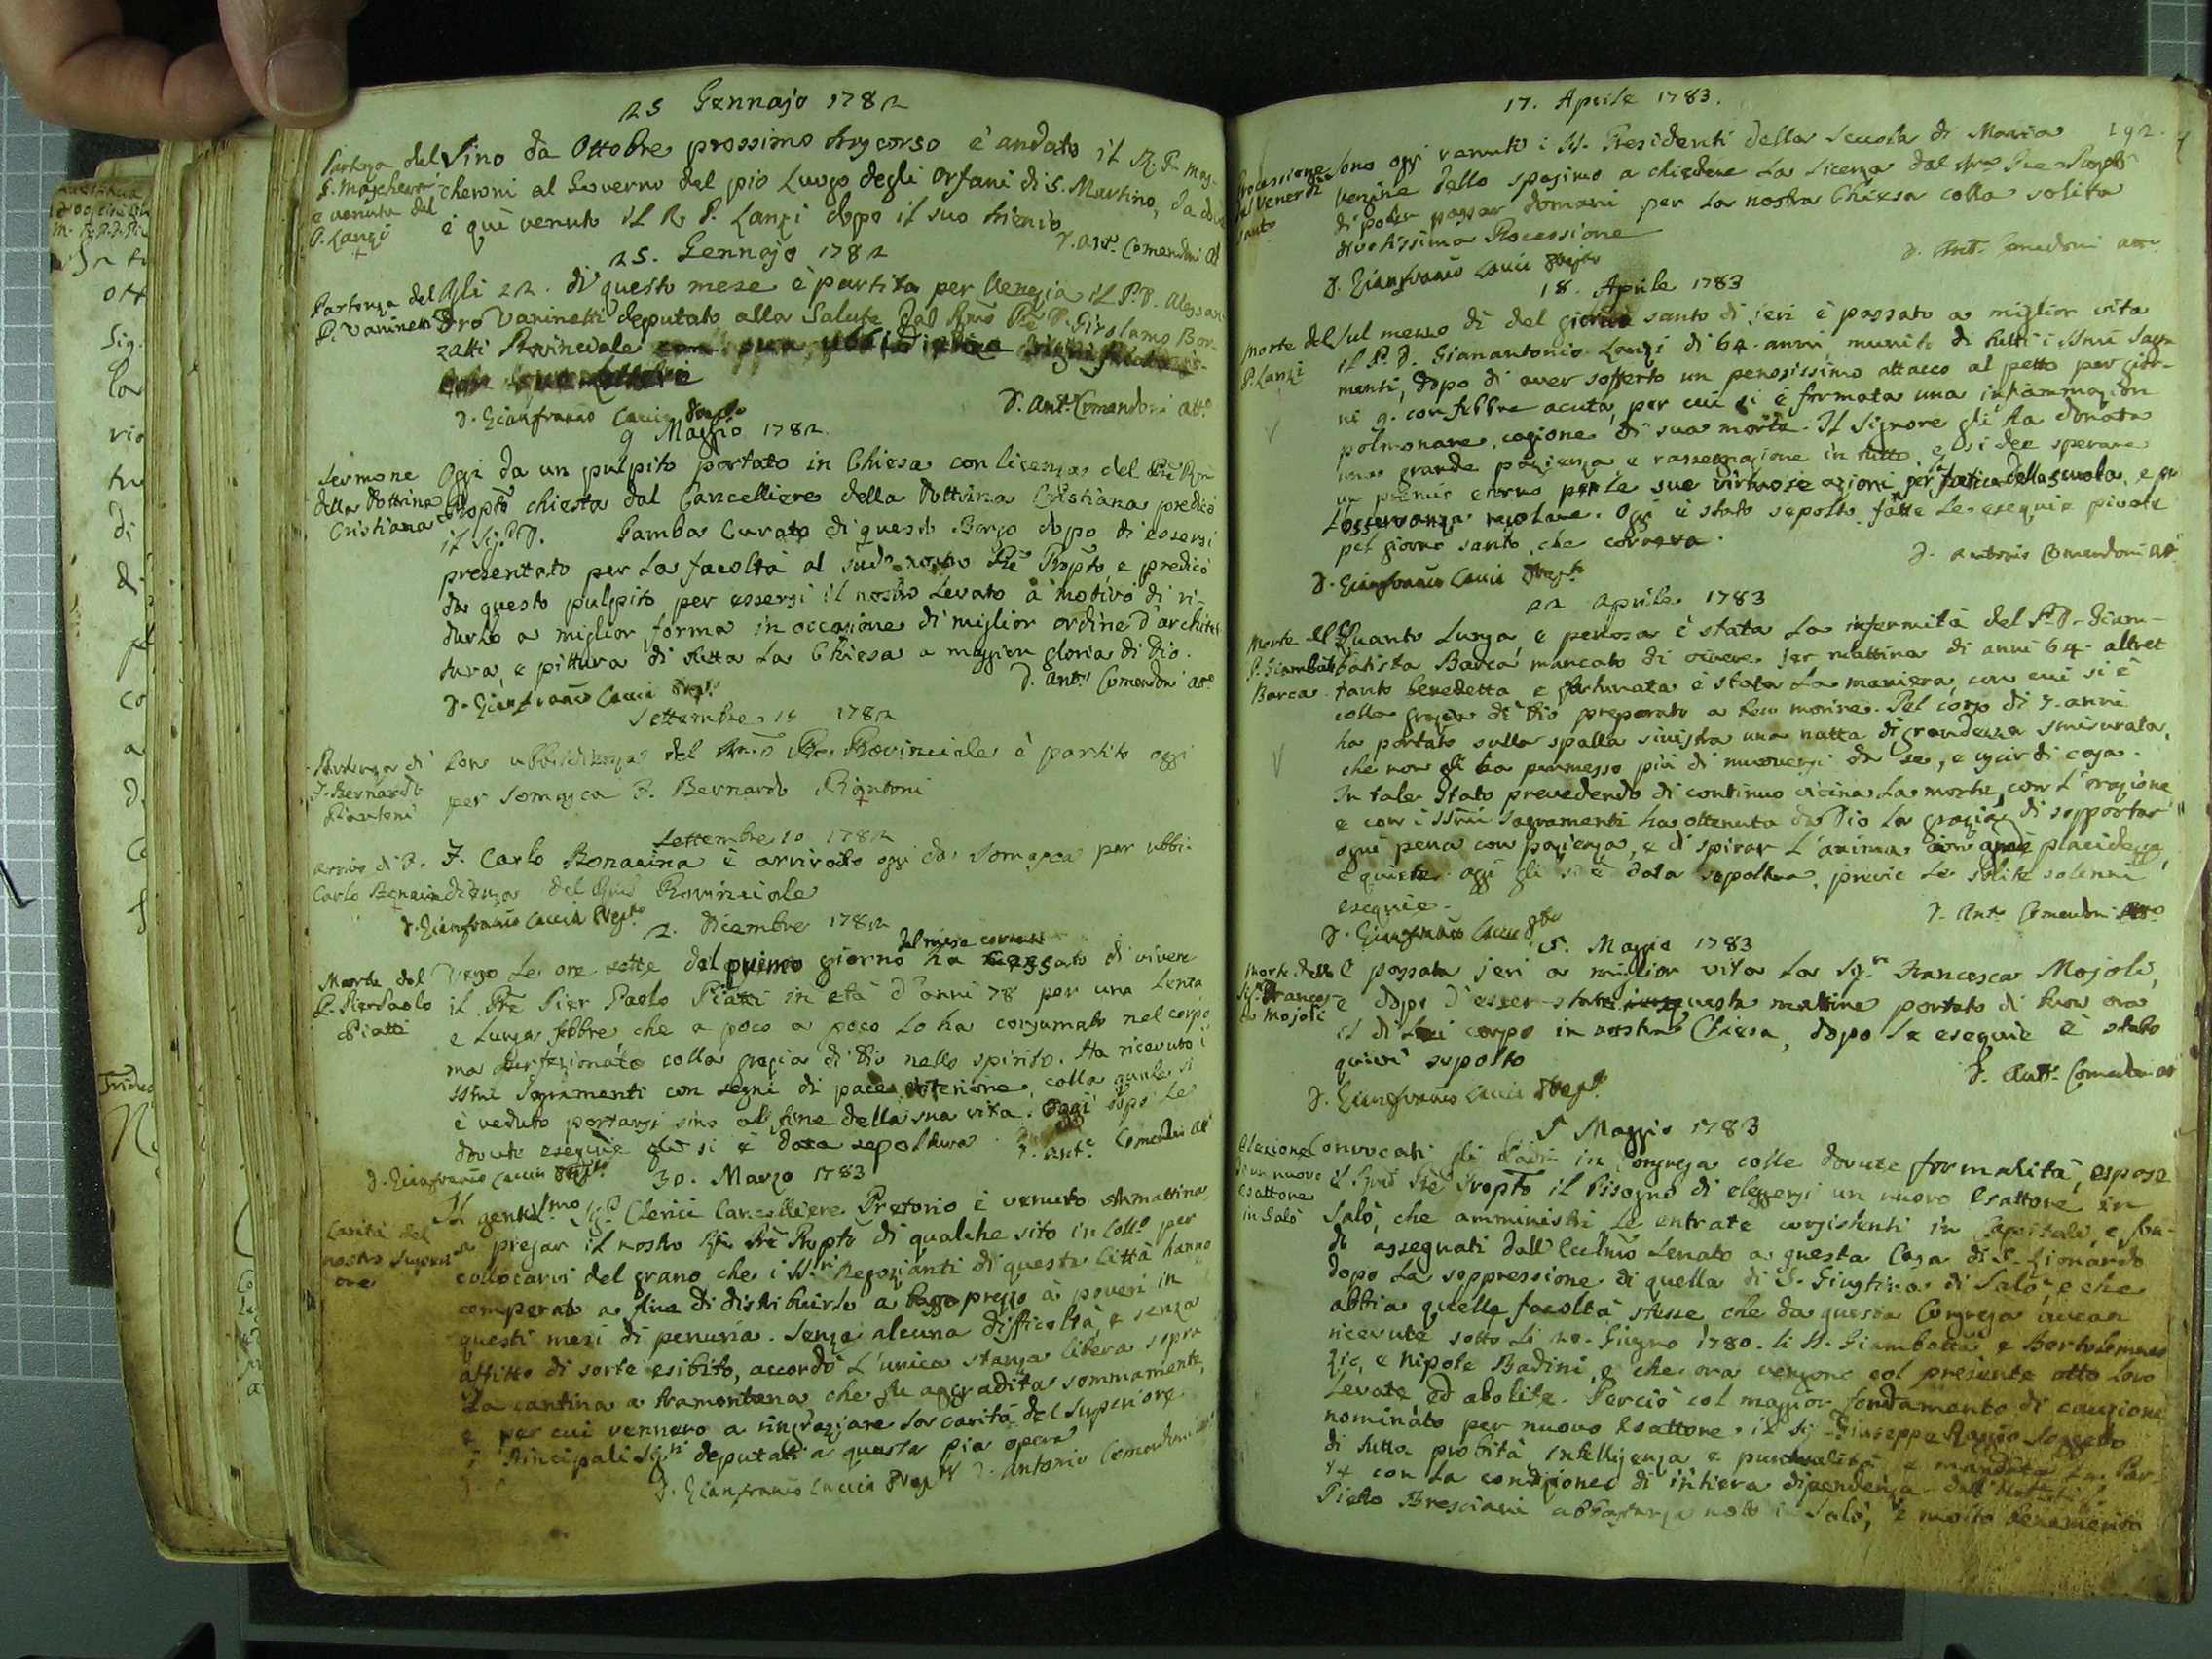 25 Gennajo 1782
Partenza del
P. Mascheroni
e venuta del
P. Lanzi
Sino da Ottobre prossimo trascorso è andato il R. P. Mas-
cheroni al Governo del pio Luogo degli Orfani di S. Martino, da dove
è quì venuto il R. P. Lanzi dopo il suo trienio
D. Ant.º Comendoni att
25. Gennajo 1782
Partenza del
P. Vaninetti
Agli 22. di questo mese è partito per Venezia il P. D. Alessan-
dro Vaninetti deputato alla Salute dal Rmo Pre D. Girolamo Bor-
zatti Provinciale
D. Gianfranco Caccia Prepto
D. Ant.º Comendoni att.º
9 Maggio 1782
Sermone
della Dottrina
Cristiana
Oggi da un pulpito portato in Chiesa con licenza del Pre
Propto chiesta dal Cancelliere della Dottrina Cristiana predicò
il Sig.r D. Gamba Curato di questo Borgo dopo di essersi
presentato per la facoltà al sud.º nostro Pre Propto, e predicò
da questo pulpito per essersi il nostro levato a motivo di ri-
durlo a miglior forma in occasione di miglior ordine d'archite-
tura, e pittura di tutta la Chiesa a maggior gloria di Dio.
D. Gianfranco Caccia Prepto
D. Ant.º Comendoni att.º
Settembre 1782
Partenza di
F. Bernardo
Piantoni
Con ubbidienza del Rmo Pre Provinciale è partito oggi
per Somasca F. Bernardo Piantoni
Settembre 10 1782
Arrivo di F.
Carlo Bonacina
F. Carlo Bonacina è arrivato oggi da Somasca per ubbi-
dienza del Rmo Provinciale
D. Gianfranco Caccia Prepto
2. Dicembre 1782
Morte del
P. Pier Paolo
Piatti
Verso le ore sette del primo giorno del mese corrente ha cessato di vivere
il Pre Pier Paolo Piatti in età d'anni 78 per una lenta
e lunga febbre, che a poco a poco lo ha consumato nel corpo
ma perfezionato colla grazia di Dio nello spirito. Ha ricevuto i
SSmi Sagramenti con segni di pace interiore, colla quale si
è veduto portarsi sino al fine della sua vita. Oggi dopo le
dovute esequie gli si è data sepoltura.
D. Ant.º Comendoni att
D. Gianfranco Caccia Prepto
30. Marzo 1783
Carità del
nostro Superi-
ore
Il gentil.mo Sig.r Clerici Cancelliere Pretorio è venuto stamattina
a pregar il nostro Pre Propto di qualche sito in Coll.º per
collocarvi del grano che i SS.ri Negozianti di questa Città hanno
comperato a fine di distribuirlo a basso prezzo a' poveri in
questi mesi di penuria. Senza alcuna difficoltà, e senza
affitto di sorte esibito, accordò l'unica stanza libera sopra
la cantina a tramontana che fu aggradita sommamente,
e per cui vennero a ringraziare la carità del Superiore
i Principali Sig.ri deputati a questa pia opera
D. Gianfranco Caccia Prepto D. Antonio Comendoni att
17. Aprile 1783.
192.
Processione
del Venerdì
santo
Sono oggi venuti i SS. Presidenti della Scuola di Maria
Vergine dello spasimo a chiedere la licenza dal Rmo Pre Propto
di poter passar domani per la nostra Chiesa colla solita
divotissima Processione
D. Ant. Comendoni att.
D. Gianfranco Caccia Prepto
18. Aprile 1783
Morte del
P. Lanzi
Sul mezzo dì del giovedì santo di jeri è passato a miglior vita
il P. D. Gianantonio Lanzi di 64 anni, munito di tutti i SSmi Sagra-
menti, dopo di aver sofferto un penosissimo attacco al petto per gior-
ni 9. con febbre acuta, per cui si è formata una infiammazion
polmonare, cagione di sua morte. Il Signore gli ha donata
una grande pazienza e rassegnazione in tutto, e si dee sperare
un premio eterno per le sue virtuose azioni per la fatica della scuola, e per
l'osservanza regolare. Oggi è stato sepolto, fatte le esequie private
pel giorno santo, che correva.
D. Antonio Comendoni att.
D. Gianfranco Caccia Prepto
22 Aprile 1783
Morte del
P. Giambatista
Barca
Quanto lunga, e penosa è stata la infermità del P. D. Giam-
batista Barca, mancato di vivere jer mattina di anni 64. altret
tanto benedetta, e fortunata è stata la maniera, con cui si è
colla grazia di Dio preparato a ben morire. Pel corso di 7. anni
ha portato sulla spalla sinistra una natta di grandezza smisurata,
che non gli ha permesso più di muoversi da se, e uscir di casa.
In tale stato prevedendo di continuo vicina la morte, con l'orazione
e con i SSmi Sagramenti ha ottenuta da Dio la grazia di sopportar
ogni pena con pazienza, e di spirar l'anima con placidezza,
e quiete. Oggi gli si è data sepoltura, previe le solite solenni
esequie.
D. Ant.º Comendoni att.º
D. Gianfranco Caccia Prepto
5. Maggio 1783
Morte della
Sig.ra Frances-
ca Mojoli
È passata jeri a miglior vita la Sig.ra Francesca Mojoli,
e dopo d'esser stato questa mattina portato di buon ora
il di Lei corpo in nostra Chiesa, dopo le esequie è stato
quivi sepolto
D. Ant.º Comendoni att
D. Gianfranco Caccia Prepto
5 Maggio 1783
Elezione
di un nuovo
Esattore
in Salò
Convocati gli Padri in Congrega colle dovute formalità, espose
il Rmo Pre Propto il bisogno di eleggersi un nuovo Esattore in
Salò, che amministri le entrate consistenti in Capitali, e fon-
di assegnati dall'Eccelmo Senato a questa Casa di S. Lionardo
dopo la soppressione di quella di S. Giustina di Salò, e che
abbia quelle facoltà stesse che da questa Congrega avean
ricevute sotto li 20. Giugno 1780. li SS. Giambatta e Bortolommeo
Zio, e Nipote Badini, e che ora vengono col presente atto loro
levate ed abolite. Perciò col maggior fondamento di cauzione
nominato per nuovo Esattore il Sig.r Giuseppe Soggetto
di tutta probità intelligenza e puntualità e
con la condizione di intiera dipendenza
Pietro Bresciani abbastanza noto in Salò, e molto benemerito